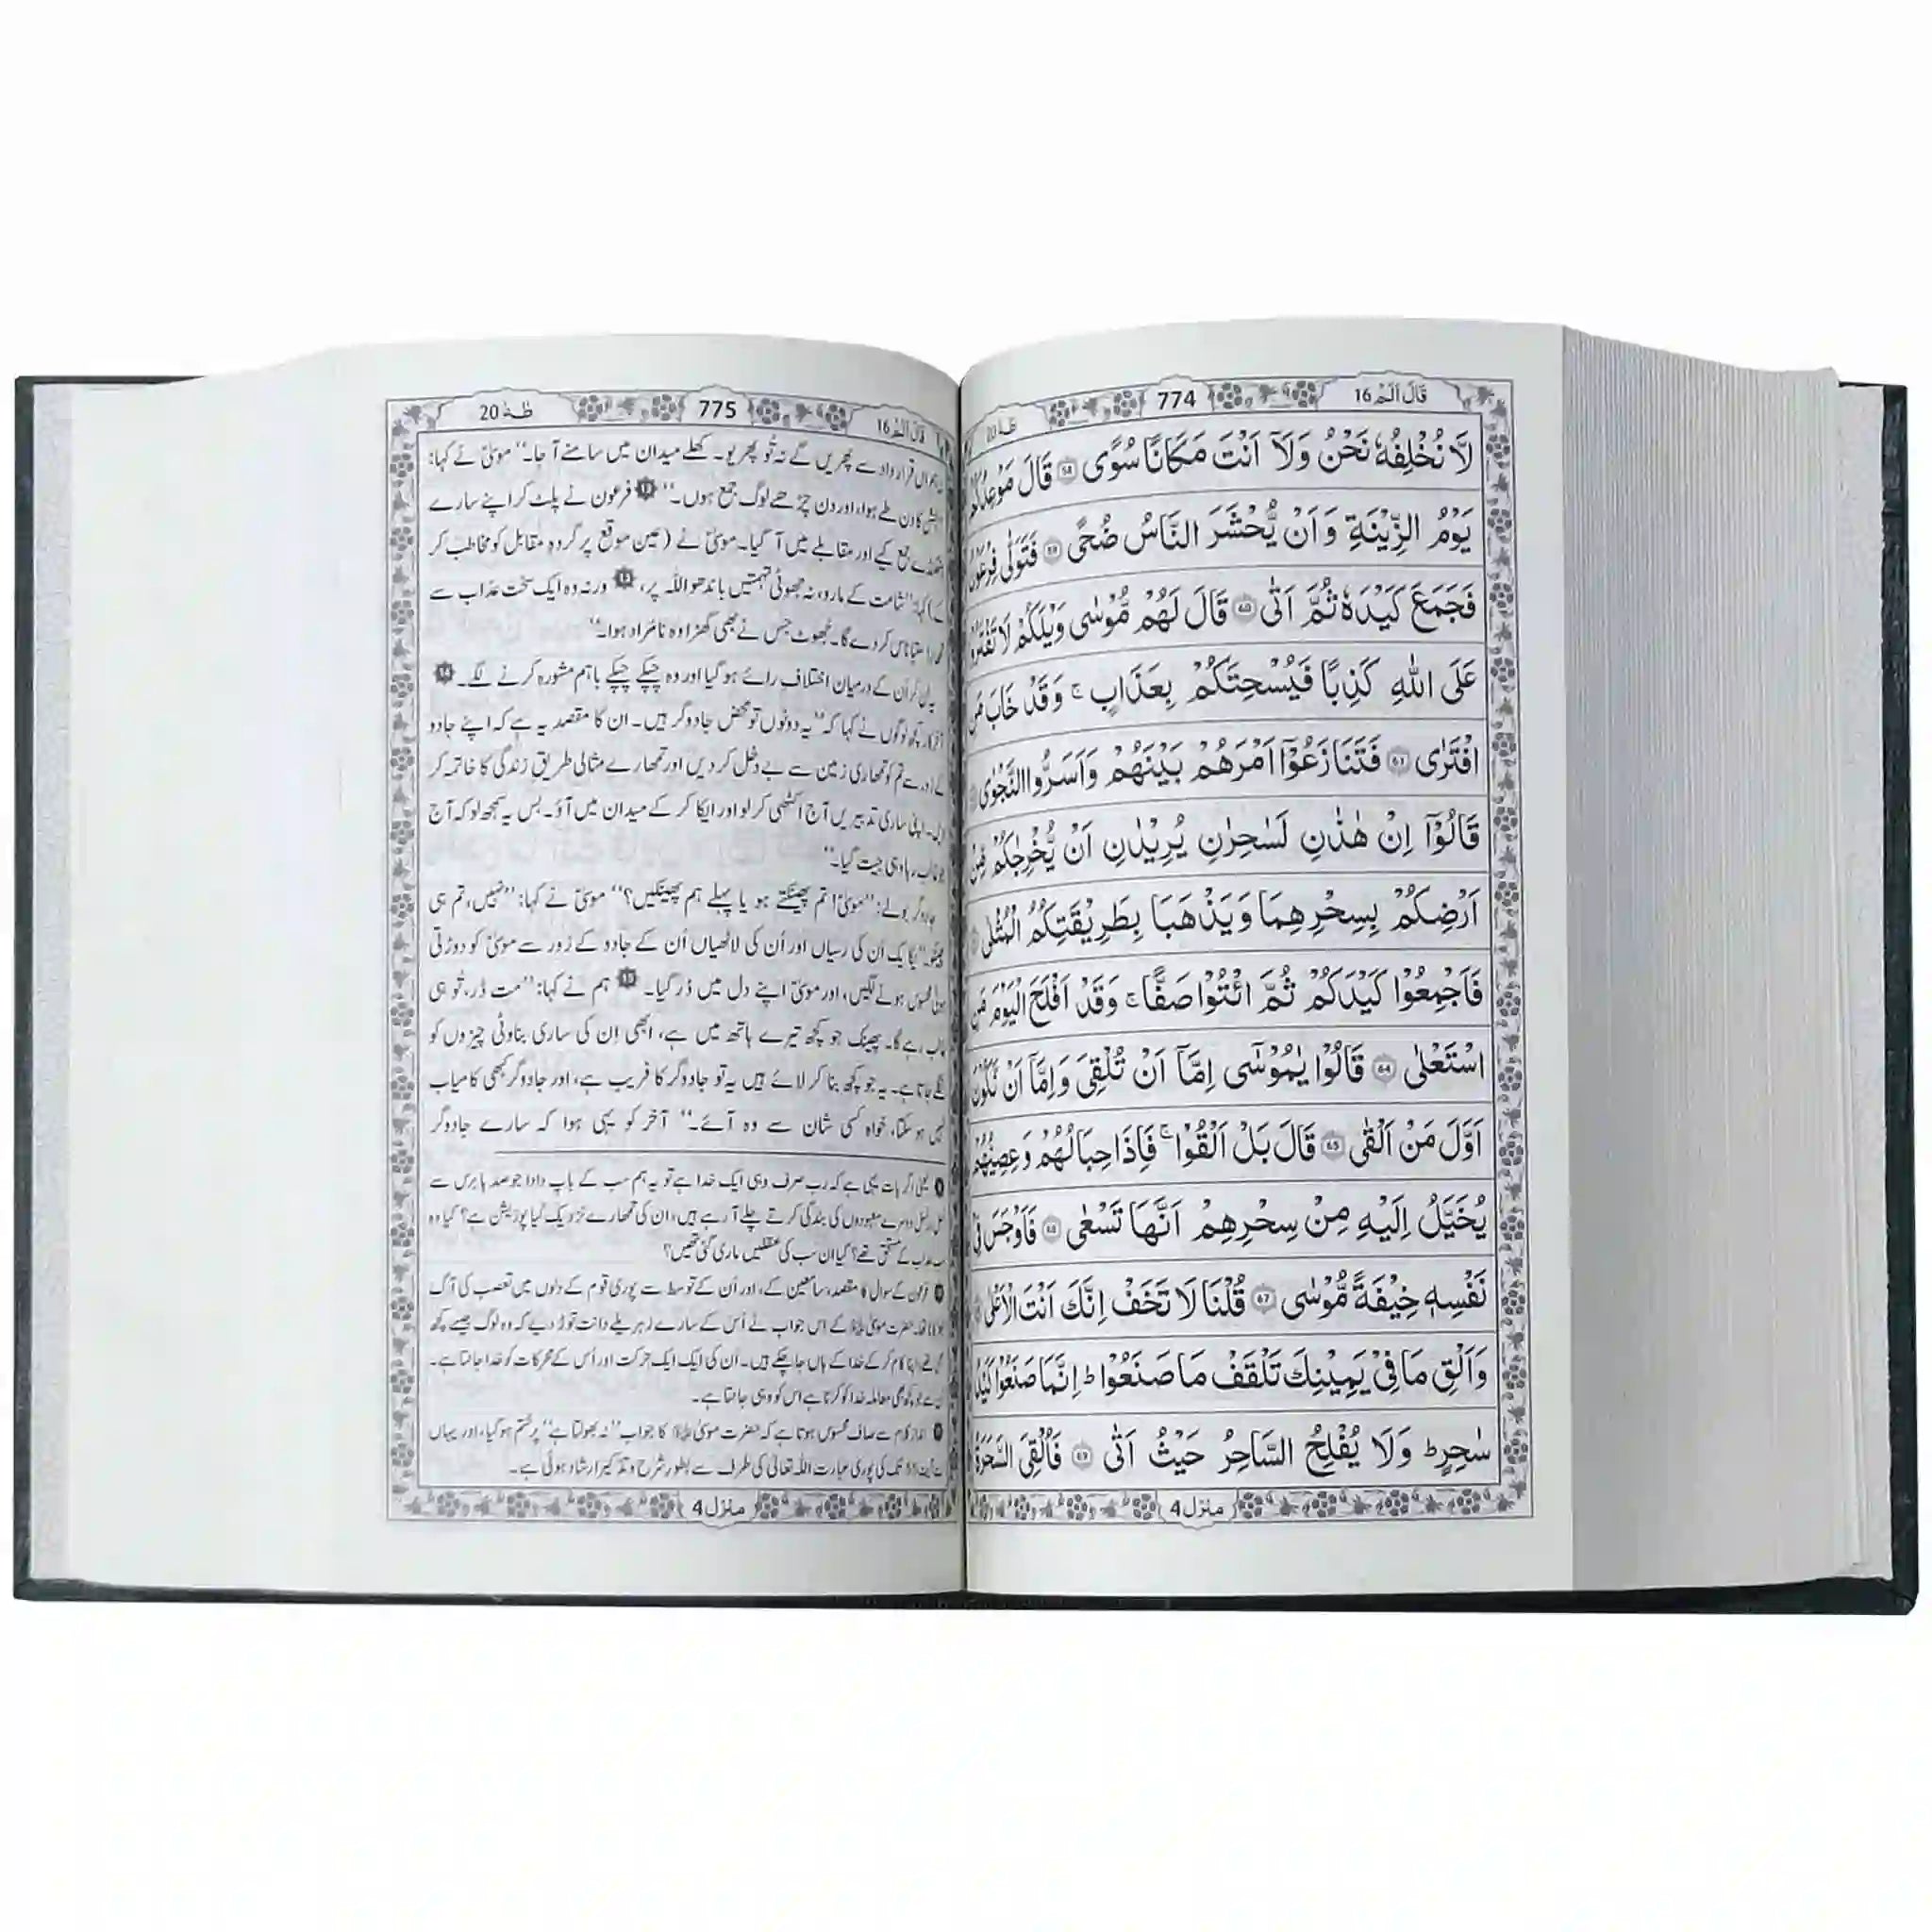 قَالَ اَلَمْ 16
774
طٰهٰ 20
لَّا نُخْلِفُهٗ نَحْنُ وَلَاۤ اَنْتَ مَكَانًا سُوًى ۝۵۸ قَالَ مَوْعِدُكُمْ
يَوْمُ الزِّيْنَةِ وَاَنْ يُّحْشَرَ النَّاسُ ضُحًى ۝۵۹ فَتَوَلّٰى فِرْعَوْنُ
فَجَمَعَ كَيْدَهٗ ثُمَّ اَتٰى ۝۶۰ قَالَ لَهُمْ مُّوْسٰى وَيْلَكُمْ لَا تَفْتَرُوْا
عَلَى اللّٰهِ كَذِبًا فَيُسْحِتَكُمْ بِعَذَابٍ ۚ وَقَدْ خَابَ مَنِ
افْتَرٰى ۝۶۱ فَتَنَازَعُوْۤا اَمْرَهُمْ بَيْنَهُمْ وَاَسَرُّوا النَّجْوٰى
قَالُوْۤا اِنْ هٰذٰىنِ لَسٰحِرٰنِ يُرِيْدٰنِ اَنْ يُّخْرِجٰكُمْ مِّنْ
اَرْضِكُمْ بِسِحْرِهِمَا وَيَذْهَبَا بِطَرِيْقَتِكُمُ الْمُثْلٰى
فَاَجْمِعُوْا كَيْدَكُمْ ثُمَّ ائْتُوْا صَفًّا ۚ وَقَدْ اَفْلَحَ الْيَوْمَ مَنِ
اسْتَعْلٰى ۝۶۴ قَالُوْا يٰمُوْسٰۤى اِمَّاۤ اَنْ تُلْقِيَ وَاِمَّاۤ اَنْ نَّكُوْنَ
اَوَّلَ مَنْ اَلْقٰى ۝۶۵ قَالَ بَلْ اَلْقُوْا ۚ فَاِذَا حِبَالُهُمْ وَعِصِيُّهُمْ
يُخَيَّلُ اِلَيْهِ مِنْ سِحْرِهِمْ اَنَّهَا تَسْعٰى ۝۶۶ فَاَوْجَسَ فِيْ
نَفْسِهٖ خِيْفَةً مُّوْسٰى ۝۶۷ قُلْنَا لَا تَخَفْ اِنَّكَ اَنْتَ الْاَعْلٰى
وَاَلْقِ مَا فِيْ يَمِيْنِكَ تَلْقَفْ مَا صَنَعُوْا ؕ اِنَّمَا صَنَعُوْا كَيْدُ
سٰحِرٍ ؕ وَلَا يُفْلِحُ السَّاحِرُ حَيْثُ اَتٰى ۝۶۹ فَاُلْقِيَ السَّحَرَةُ
منزل 4
قَالَ اَلَمْ 16
775
طٰهٰ 20
اس قرارداد سے پھریں گے نہ تو پھریو۔ کھلے میدان میں سامنے آ جا۔’’ موسیٰؑ نے کہا:
کا دن طے ہوا، اور دن چڑھے لوگ جمع ہوں۔’’ فرعون نے پلٹ کر اپنے سارے
جمع کیے اور مقابلے میں آ گیا۔ موسیٰؑ نے (عین موقع پر گروہِ مقابل کو مخاطب کر
کہا: ‘‘شامت کے مارو، نہ جھوٹی تہمتیں باندھو اللہ پر، ورنہ وہ ایک سخت عذاب سے
ستیاناس کر دے گا۔ جُھوٹ جس نے بھی گھڑا وہ نامُراد ہوا۔’’
یہ سُن کر اُن کے درمیان اختلافِ رائے ہو گیا اور وہ چپکے چپکے باہم مشورہ کرنے لگے۔
آخر کار کچھ لوگوں نے کہا کہ ‘‘یہ دونوں تو محض جادوگر ہیں۔ ان کا مقصد یہ ہے کہ اپنے جادو
سے تم کو تمھاری زمین سے بے دخل کر دیں اور تمھارے مثالی طریقِ زندگی کا خاتمہ کر
اپنی ساری تدبیریں آج اکٹھی کر لو اور ایکا کر کے میدان میں آؤ۔ بس یہ سمجھ لو کہ آج
جو غالب رہا وہی جیت گیا۔’’
جادوگر بولے: ‘‘موسیٰؑ! تم پھینکتے ہو یا پہلے ہم پھینکیں؟’’ موسیٰؑ نے کہا: ‘‘نہیں، تم ہی
پھینکو۔’’ یکایک اُن کی رسیاں اور اُن کی لاٹھیاں اُن کے جادو کے زور سے موسیٰؑ کو دوڑتی
ہوئی محسوس ہونے لگیں، اور موسیٰؑ اپنے دل میں ڈر گیا۔ ہم نے کہا: ‘‘مت ڈر، تُو ہی
غالب رہے گا۔ پھینک جو کچھ تیرے ہاتھ میں ہے، ابھی اِن کی ساری بناوٹی چیزوں کو
نگلے جاتا ہے۔ یہ جو کچھ بنا کر لائے ہیں یہ تو جادوگر کا فریب ہے، اور جادوگر کبھی کامیاب
نہیں ہو سکتا، خواہ کسی شان سے وہ آئے۔’’ آخر کو یہی ہوا کہ سارے جادوگر
یعنی اگر بات یہی ہے کہ رب صرف وہی ایک خدا ہے تو یہ ہم سب کے باپ دادا جو صدہا برس سے
دوسرے معبودوں کی بندگی کرتے چلے آ رہے ہیں، ان کی تمھارے نزدیک کیا پوزیشن ہے؟ کیا وہ
عذاب کے مستحق تھے؟ کیا ان سب کی عقلیں ماری گئی تھیں؟
فرعون کے سوال کا مقصد سامعین کے، اور اُن کے توسط سے پوری قوم کے دلوں میں تعصب کی آگ
حضرت موسیٰؑ کے اس جواب نے اُس کے سارے زہریلے دانت توڑ دیے کہ وہ لوگ جیسے کچھ
اپنا کام کر کے خدا کے ہاں جا چکے ہیں۔ اُن کی ایک ایک حرکت اور اُس کے محرکات کو خدا جانتا ہے۔
جو کچھ بھی معاملہ خدا کو کرنا ہے اس کو وہی جانتا ہے۔
اندازِ کلام سے صاف محسوس ہوتا ہے کہ حضرت موسیٰؑ کا جواب ‘‘نہ بھولتا ہے’’ پر ختم ہو گیا، اور یہاں
تک کی پوری عبارت اللہ تعالیٰ کی طرف سے بطور شرح و تذکیر ارشاد ہوئی ہے۔
منزل 4